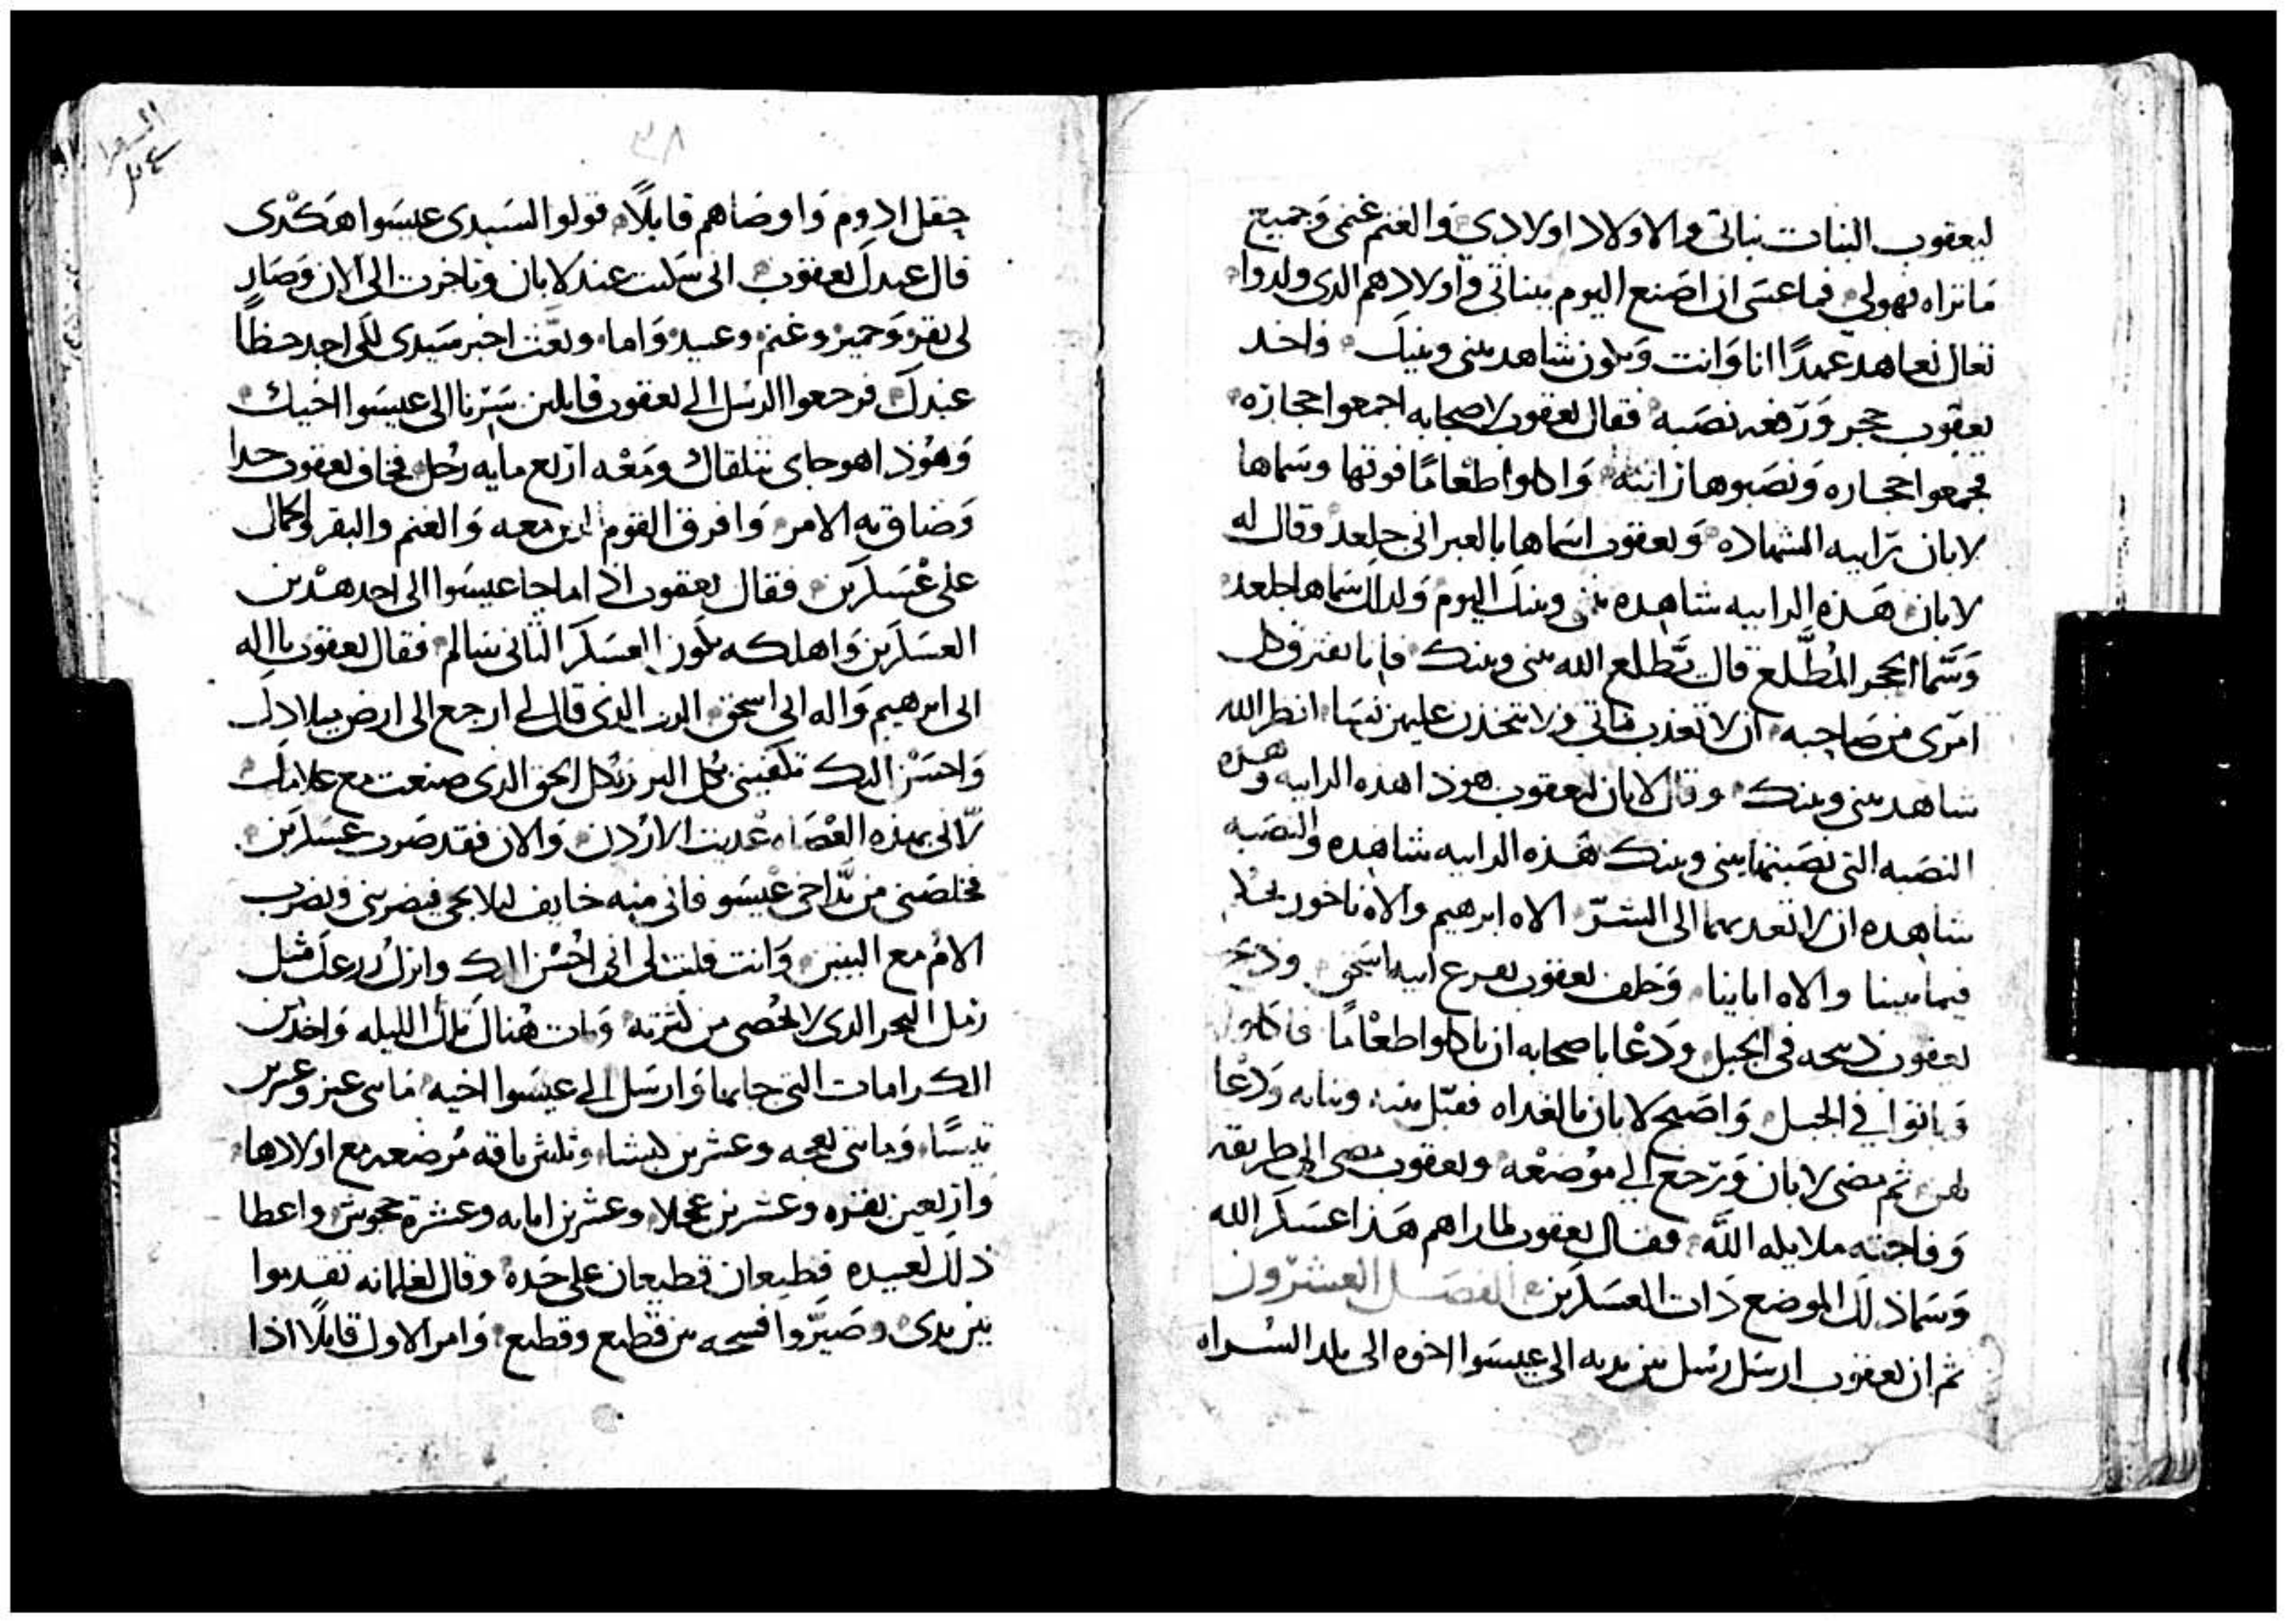 ليعقوب البنات بناتى والاولاد اولادي والغنم غنمى وجميع
ماتراه فهولي فماعسى ان اصنع اليوم ببناتى واولادهم الدى ولدوا
تعال نعاهد عهدًا انا وانت ويكون شاهد بينى وبينك واخد
يعقوب حجر ورفعه نصبه فقال يعقوب لاصحابه اجمعوا حجاره
فجمعوا حجاره ونصبوها رابيه واكلوا طعامًا فوقها وسماها
لابان رابيه الشهاده ويعقوب اسماها بالعبرانى جلعد وقال له
لابان هذه الرابيه شاهده بينى وبينك اليوم ولدلك سماها جلعد
وسما الحجر المُطَّلع قال يطلع الله بينى وبينك فاننا نفترق كل
امرى من صاحبه ان لا تعذب بناتى ولا تتخذن عليهن نسا انظر الله
شاهد بينى وبينك وقال لابان ليعقوب هوذا هذه الرابيه وهده
النصبه التى نصبتها بينى وبينك هذه الرابيه شاهده والنصبه
شاهده ان لا تعد بهما الى الشرّ الاه ابرهيم والاه ناخور يحكم
فيما بيننا والاه ابابنا وحلف يعقوب بفرع ابيه اسحق ودبح
يعقوب دبيحه فى الجبل ودعا باصحابه ان ياكلوا طعامًا فاكلوا
وباتوا في الجبل واصبح لابان بالغداه فقبّل بنيه وبناته ودعا
لهن ثم مضى لابان ورجع الي موضعه ويعقوب مضى الى طريقه
وفاجته ملايله الله فقال يعقوب لما راهم هذا عسكر الله
وسما ذلك الموضع ذات العسكرين الفصل العشرون
ثم ان يعقوب ارسل رسل بين يديه الى عيسوا اخوه الى بلد السراه
٣٨
حقل ادوم واوصاهم قايلًا قولوا لسيدى عيسوا هكدى
قال عبدك يعقوب انى سكنت عند لابان وتاخرت الى الان وصار
لى بقر وحمير وغنم وعبيد واما وبعثت اخبر سيدى لكى اجد حظًا
عبدك فرجعوا الرسل الي يعقوب قايلين سرنا الى عيسوا اخيك
وهوذا هو جاى يتلقاك ومعه اربع مايه رجل فخاف يعقوب جدا
وضاق به الامر وافرق القوم الدين معه والغنم والبقر والجمال
على عسكرين فقال يعقوب اذا ما جا عيسوا الى احد هذين
العسكرين واهلكه يكون العسكر الثانى سالم فقال يعقوب يا اله
ابى ابرهيم واله ابى اسحق الرب الدى قال لي ارجع الى ارض ميلادك
واحسن اليك تكفينى بكل البر وبكل الحق الدى صنعت مع علامك
لانى بهذه العصاه عديت الاردن والان فقد صرت عسكرين
فخلصنى من يد اخى عيسو فانى منه خايف ليلا يجى فيضربنى ويضرب
الام مع البنين وانت قلت لى انى احسن اليك وانزل زرعك مثل
رمل البحر الدى لا يحصى من كثرته وبات هناك تلك الليله واخد من
الكرامات التى جا بها وارسل الي عيسوا اخيه مايتى عنز وعشرين
تيسًا ومايتى نعجه وعشرين كبشا وثلثين ناقه مرضعه مع اولادها
واربعين بقره وعشرين عجلا وعشرين اتانه وعشرة جحوش واعطا
ذلك لعبيده قطيعان قطيعان على حده وقال لغلمانه تقدموا
بين يدى وصيّروا فسحه بين قطيع وقطيع وامر الاول قايلًا اذا